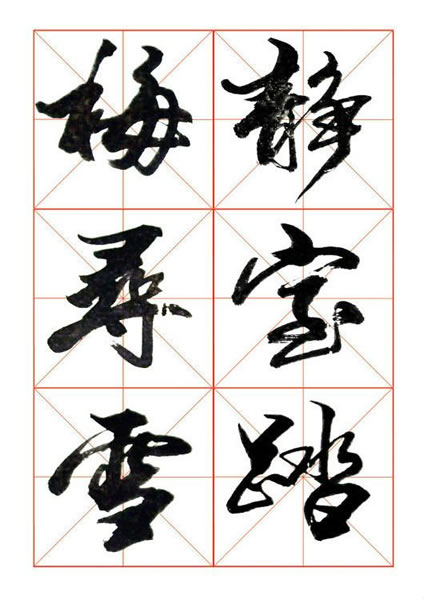 静室踏
雪尋梅